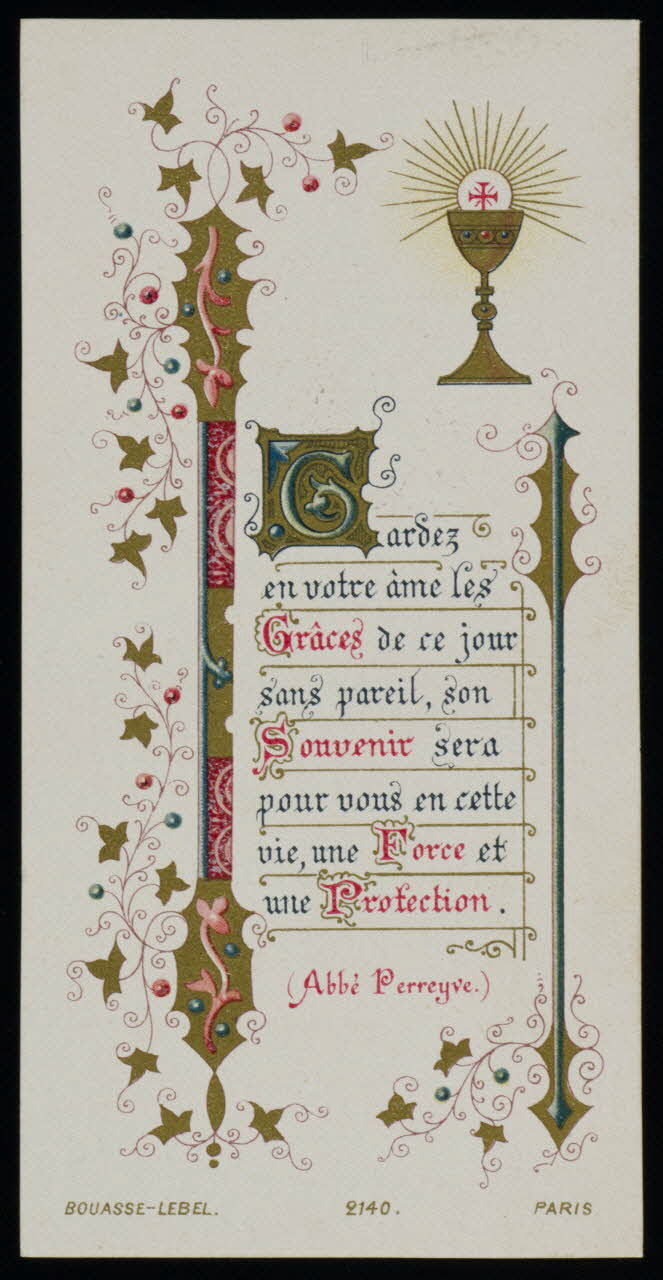 Gardez
en votre âme les
Grâces de ce jour
sans pareil, son
Souvenir sera
pour vous en cette
vie, une Force et
une Protection.
(Abbé Perreyve.)
BOUASSE-LEBEL. 2140. PARIS